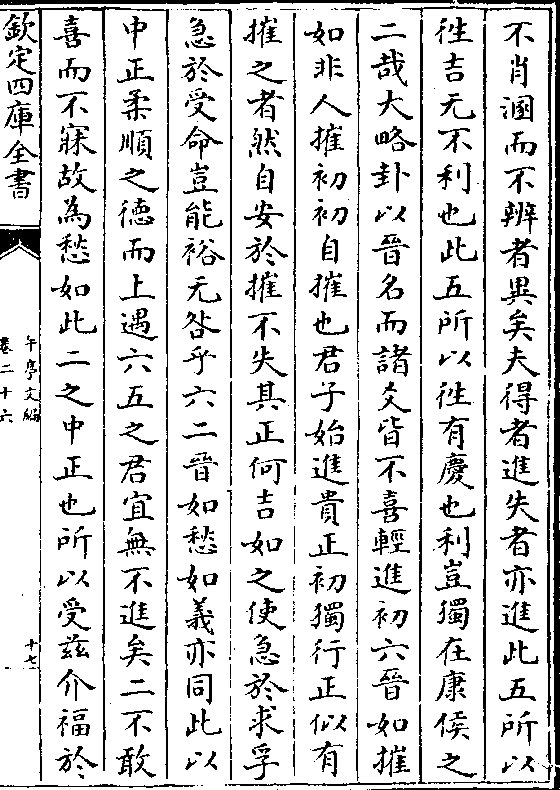 不肖溷而不辨者異矣夫得者進失者亦進此五所以
徃吉无不利也此五所以徃有慶也利豈獨在康侯之
二哉大略卦以晉名而諸爻皆不喜輕進初六晉如摧
如非人摧初初自摧也君子始進貴正初獨行正似有
摧之者然自安於摧不失其正何吉如之使急於求孚
急於受命豈能裕无咎乎六二晉如愁如義亦同此以
中正柔順之德而上遇六五之君宜無不進矣二不敢
喜而不寐故為愁如此二之中正也所以受茲介福於
欽定四庫全書
午亭文編
卷二十六
十七